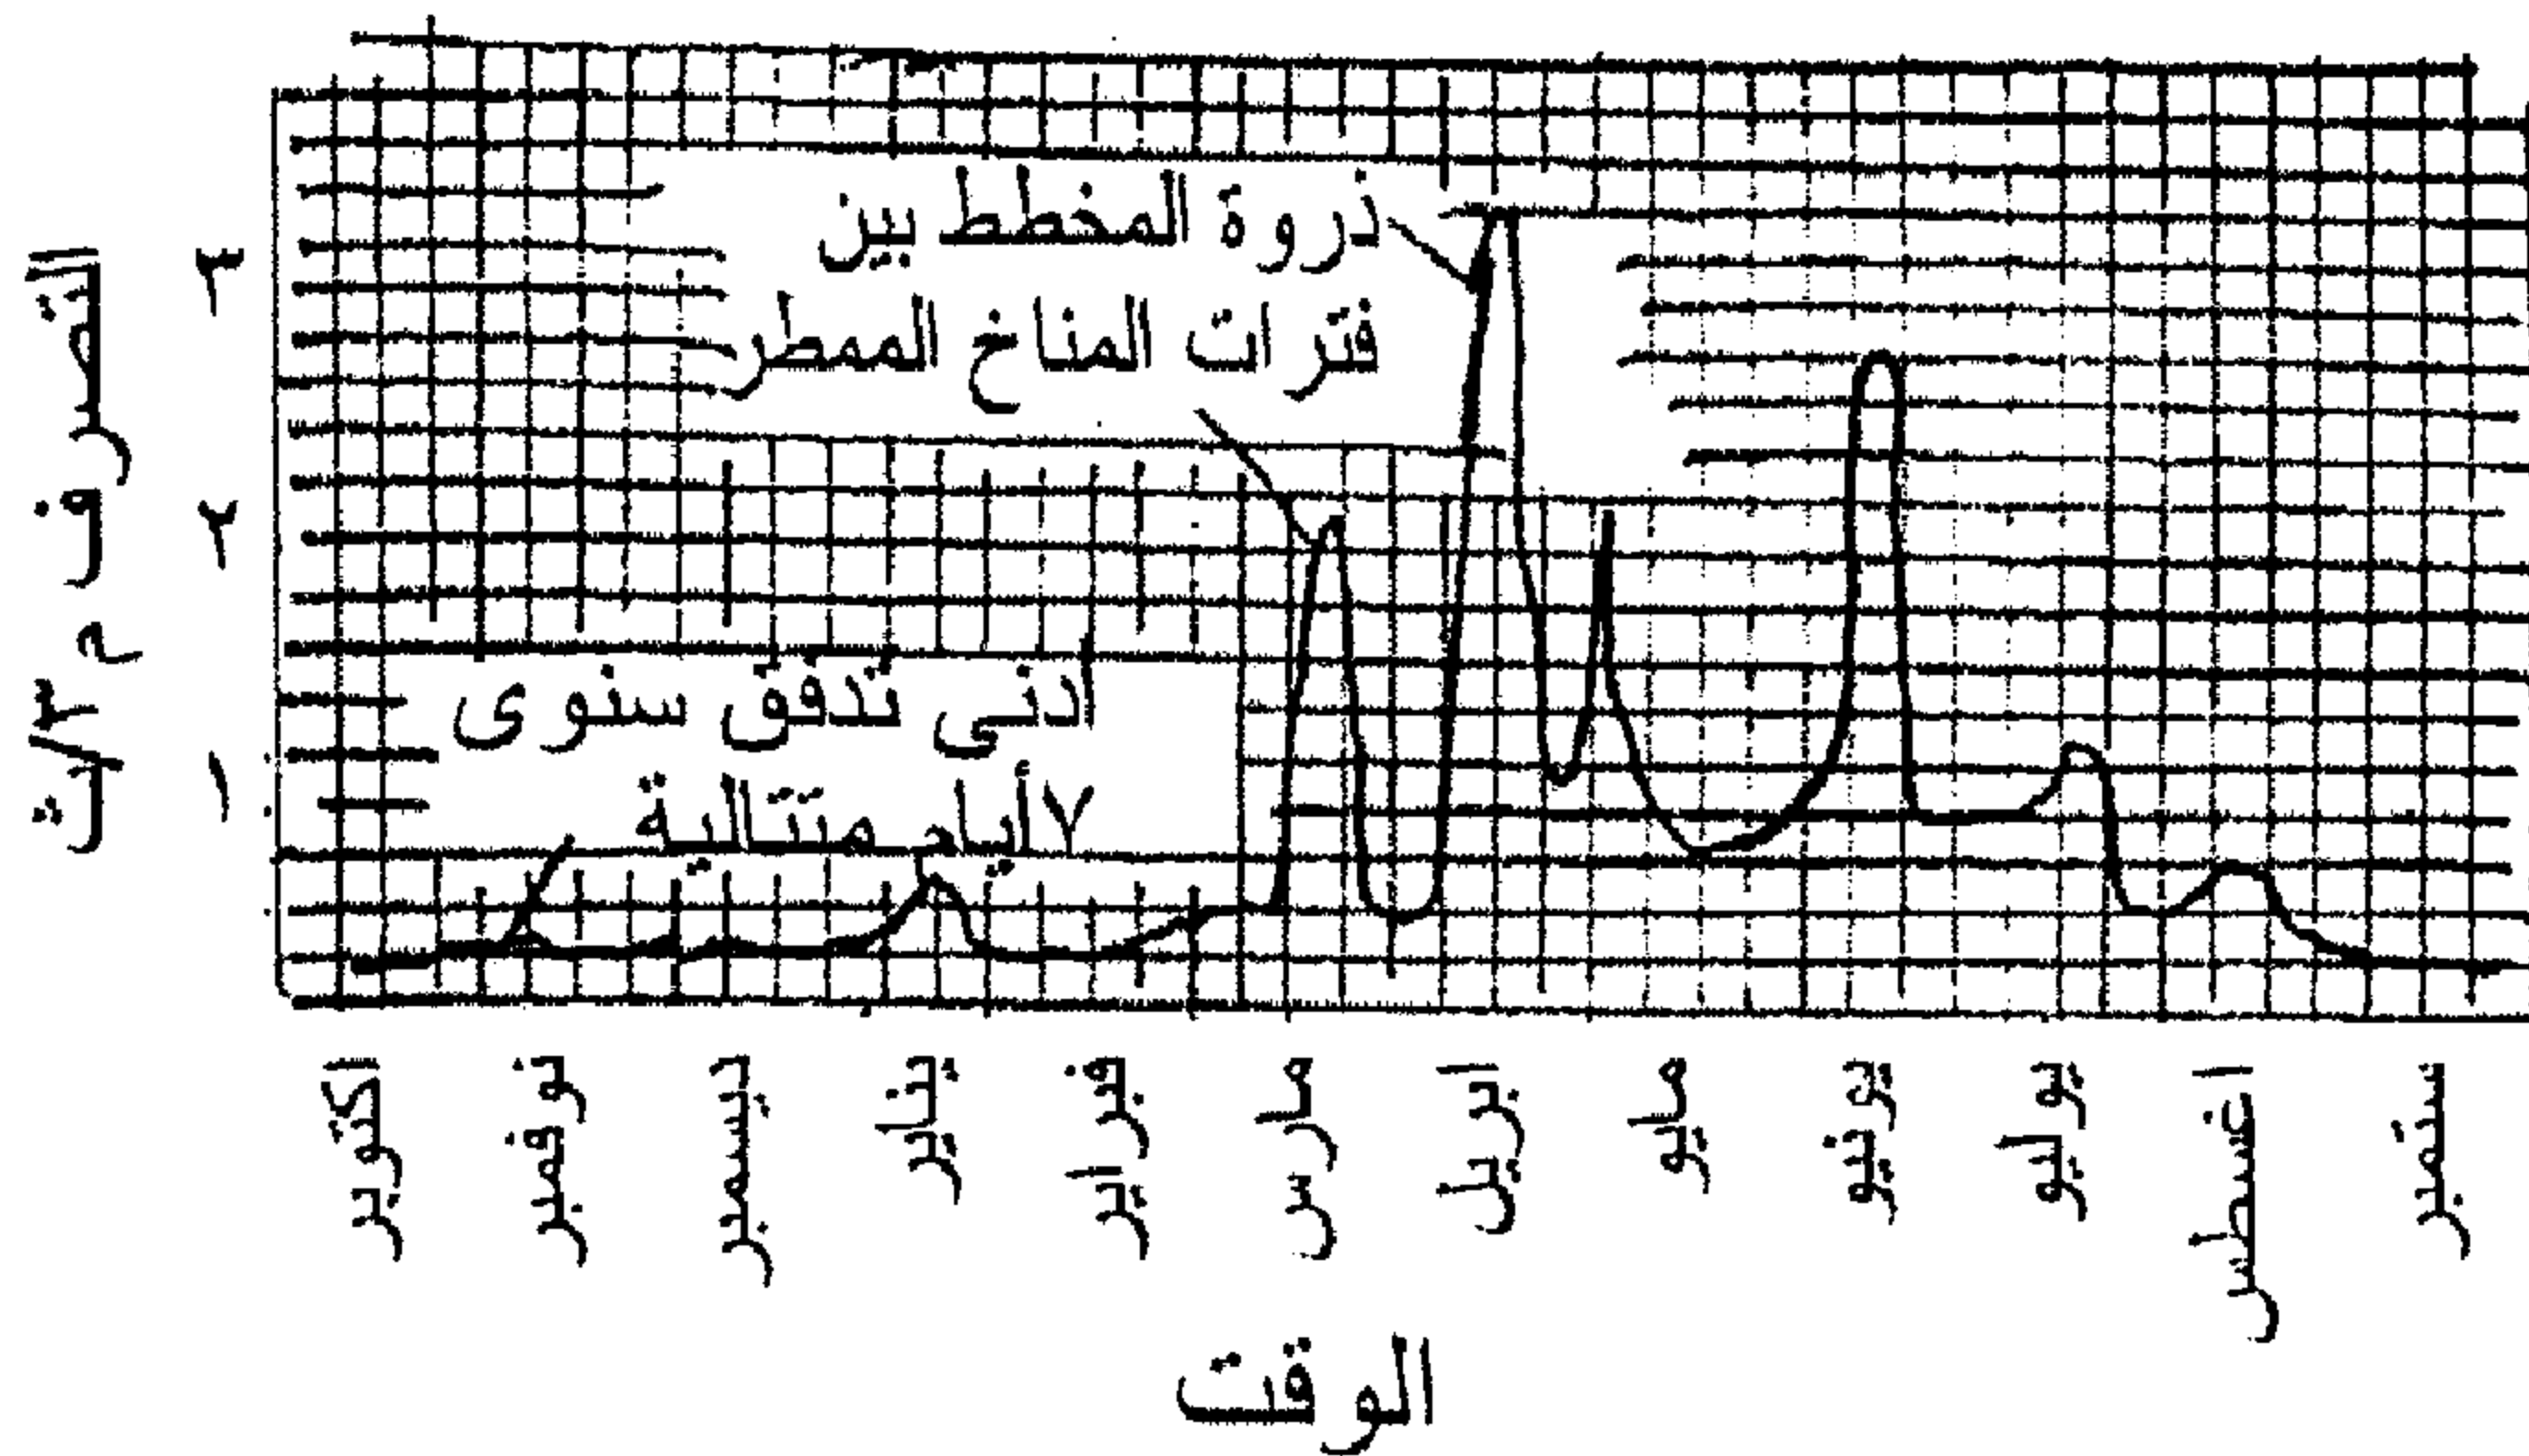 ذروة المخطط بين
فترات المناخ الممطر
أدنى تدفق سنوى
٧ أيام متتالية
التصرف م٣/ث
٣
٢
١
اكتوبر
نوفمبر
ديسمبر
يناير
فبراير
مارس
ابريل
مايو
يونيو
يوليو
اغسطس
سبتمبر
الوقت